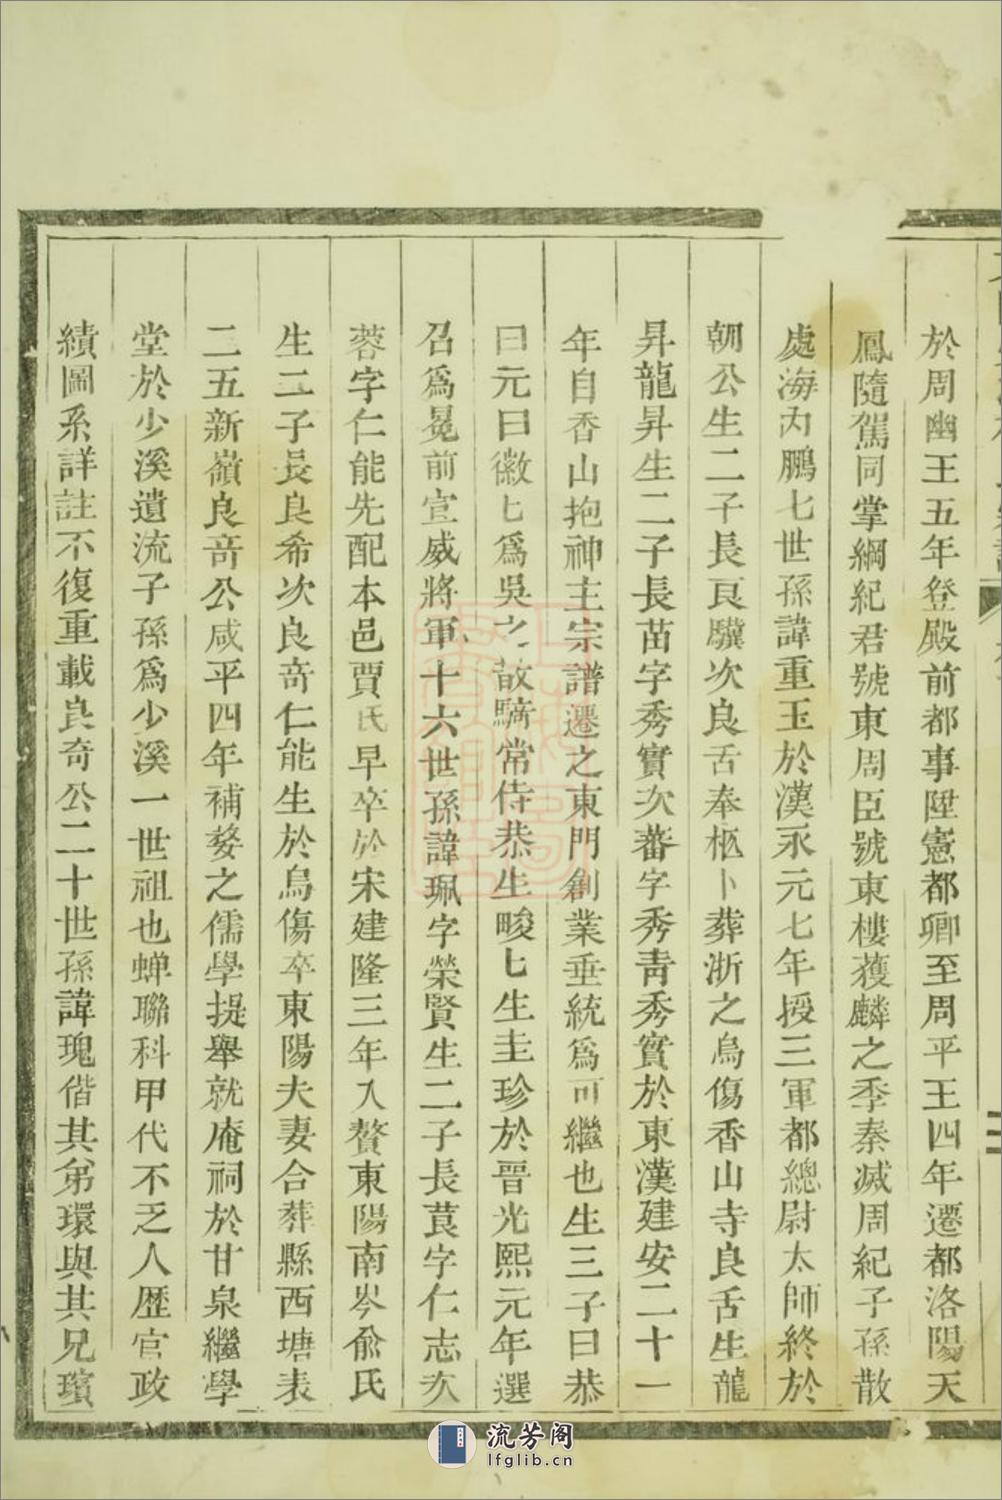 於周幽王五年登殿前都事陞憲都卿至周平王四年遷都洛陽天
鳳隨駕同掌綱紀君號東周臣號東樓獲麟之季秦滅周紀子孫散
處海內鵬七世孫諱重玉於漢永元七年授三軍都總尉太師終於
朝公生二子長良驥次良舌奉柩卜葬浙之烏傷香山寺良舌生龍
昇龍昇生二子長苗字秀實次蕃字秀青秀實於東漢建安二十一
年自香山抱神主宗譜遷之東門創業垂統為可繼也生三子曰恭
曰元曰徽七爲吳之散騎常侍恭生畯七生圭珍於晉光熙元年選
召爲冕前宣威將軍十六世孫諱珮字榮賢生二子長莨字仁志次
蓉字仁能先配本邑賈氏早卒於宋建隆三年入贅東陽南岑俞氏
生二子長良希次良奇仁能生於烏傷卒東陽夫妻合葬縣西塘表
二五新嶺良奇公咸平四年補婺之儒學提舉就庵祠於甘泉繼學
堂於少溪遺流子孫爲少溪一世祖也蟬聯科甲代不乏人歷官政
績圖系詳註不復重載良奇公二十世孫諱瑰偕其弟環與其兄璸
流芳阁
lfglib.cn